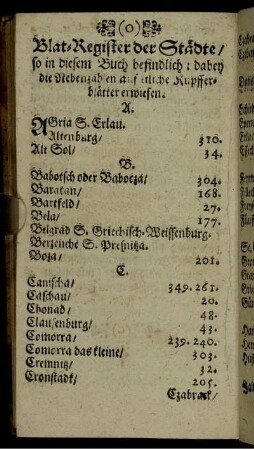 (o)
Blat-Register der Städte/
so in diesem Buch befindlich: dabey
die Nebenzahlen auf etliche Kupffer-
blätter erweisen.
A.
AGria S. Erlau.
Altenburg/ 310.
Alt Sol/ 34.
B.
Babotsch oder Babotza/ 304.
Baratan/ 168.
Bartfeld/ 27.
Bela/ 177.
Belgrad S. Griechisch-Weissenburg.
Berzeuche S. Presnitza.
Boza/ 201.
C.
Canischa/ 349. 261.
Caschau/ 20.
Chonad/ 48.
Clausenburg/ 43.
Comorra/ 239. 240.
Comorra das kleine/ 303.
Cremnitz/ 32.
Cronstadt/ 205.
Czabrack/